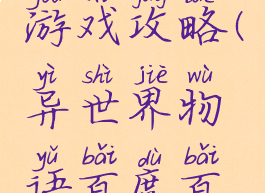 游戏攻略(
yì shì jiè wù
异世界物
yǔ bǎi dù bǎi
语百度百